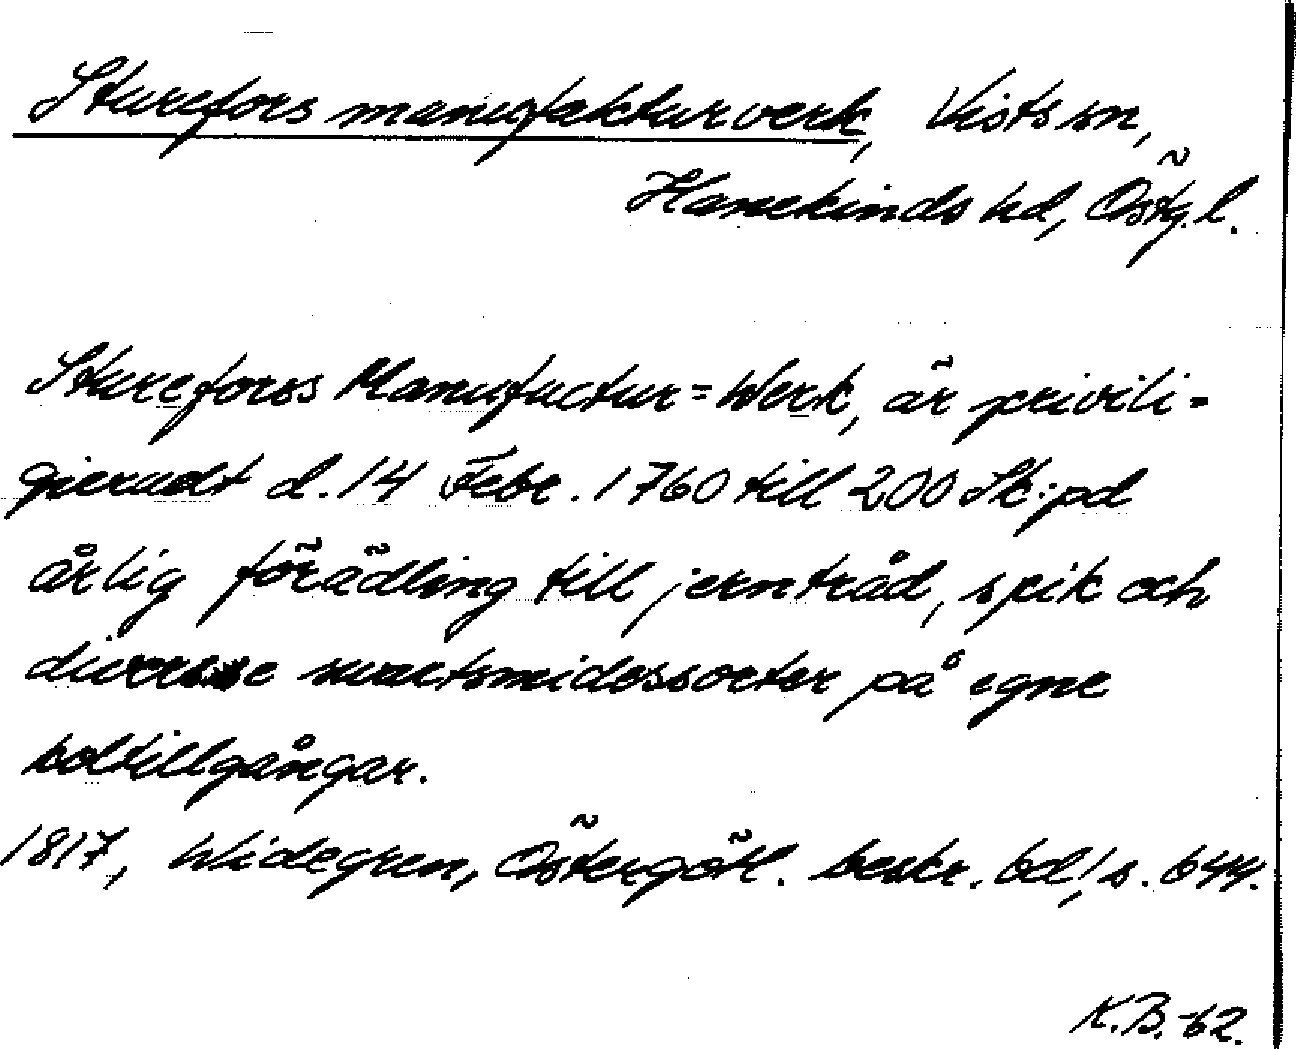 Sturefors manufakturverk, Vists sn,
Hanekinds hd, Östg.l.
Stureforss Manufactur=Werk, är privili=
gieradt d. 14 Febr. 1760 till 200 Sk:pd
årlig förädling till jerntråd, spik och
diverse svartsmidessorter på egne
koltillgångar.
1817, Widegren, Östergötl. beskr. bd 1 s. 644.
K.B.-62.